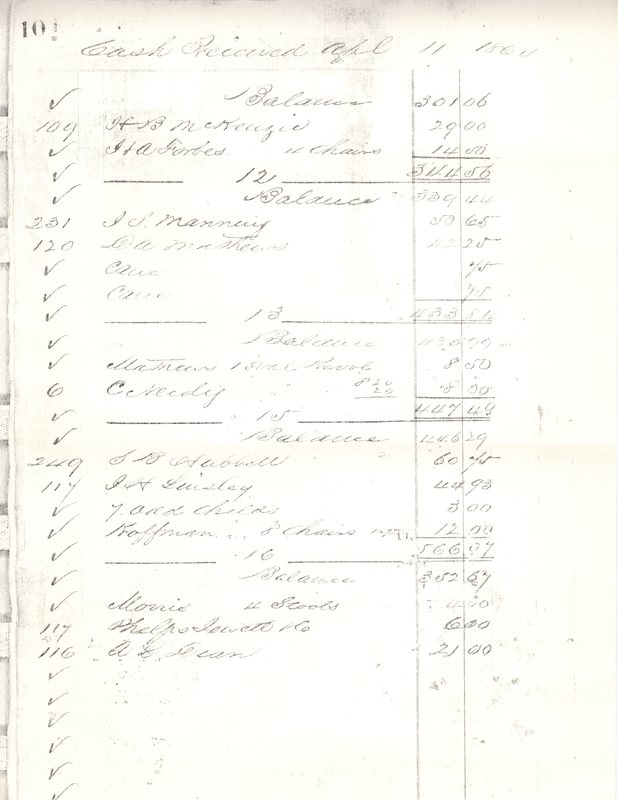 10
Cash Received Apl 11 186
✓ Balance 301 06
109 H B McKenzie 29 00
✓ I A Forbes 4 Chairs 14 50
✓ 12 344 56
✓ Balance 339 44
231 J S. Manning 50 65
120 D A Mathews 42 25
✓ Cane 75
✓ Cane 75
✓ 13 433 84
✓ Balance 430 99
✓ Mathews 1 8 50
6 C Neidy 8 20 20 8 00
✓ 15 447 49
✓ Balance 446 29
249 S B Hubbell 60 75
117 J H Linsley 44 93
✓ 7 odd Childs 3 00
✓ Hoffman 8 Chairs 12 00
✓ 16 566 97
✓ Balance 352 67
✓ Morris 4 Stools 4 00
117 Phelps Jewett & Co 6 00
116 A L Dean 21 00
✓
✓
✓
✓
✓
✓